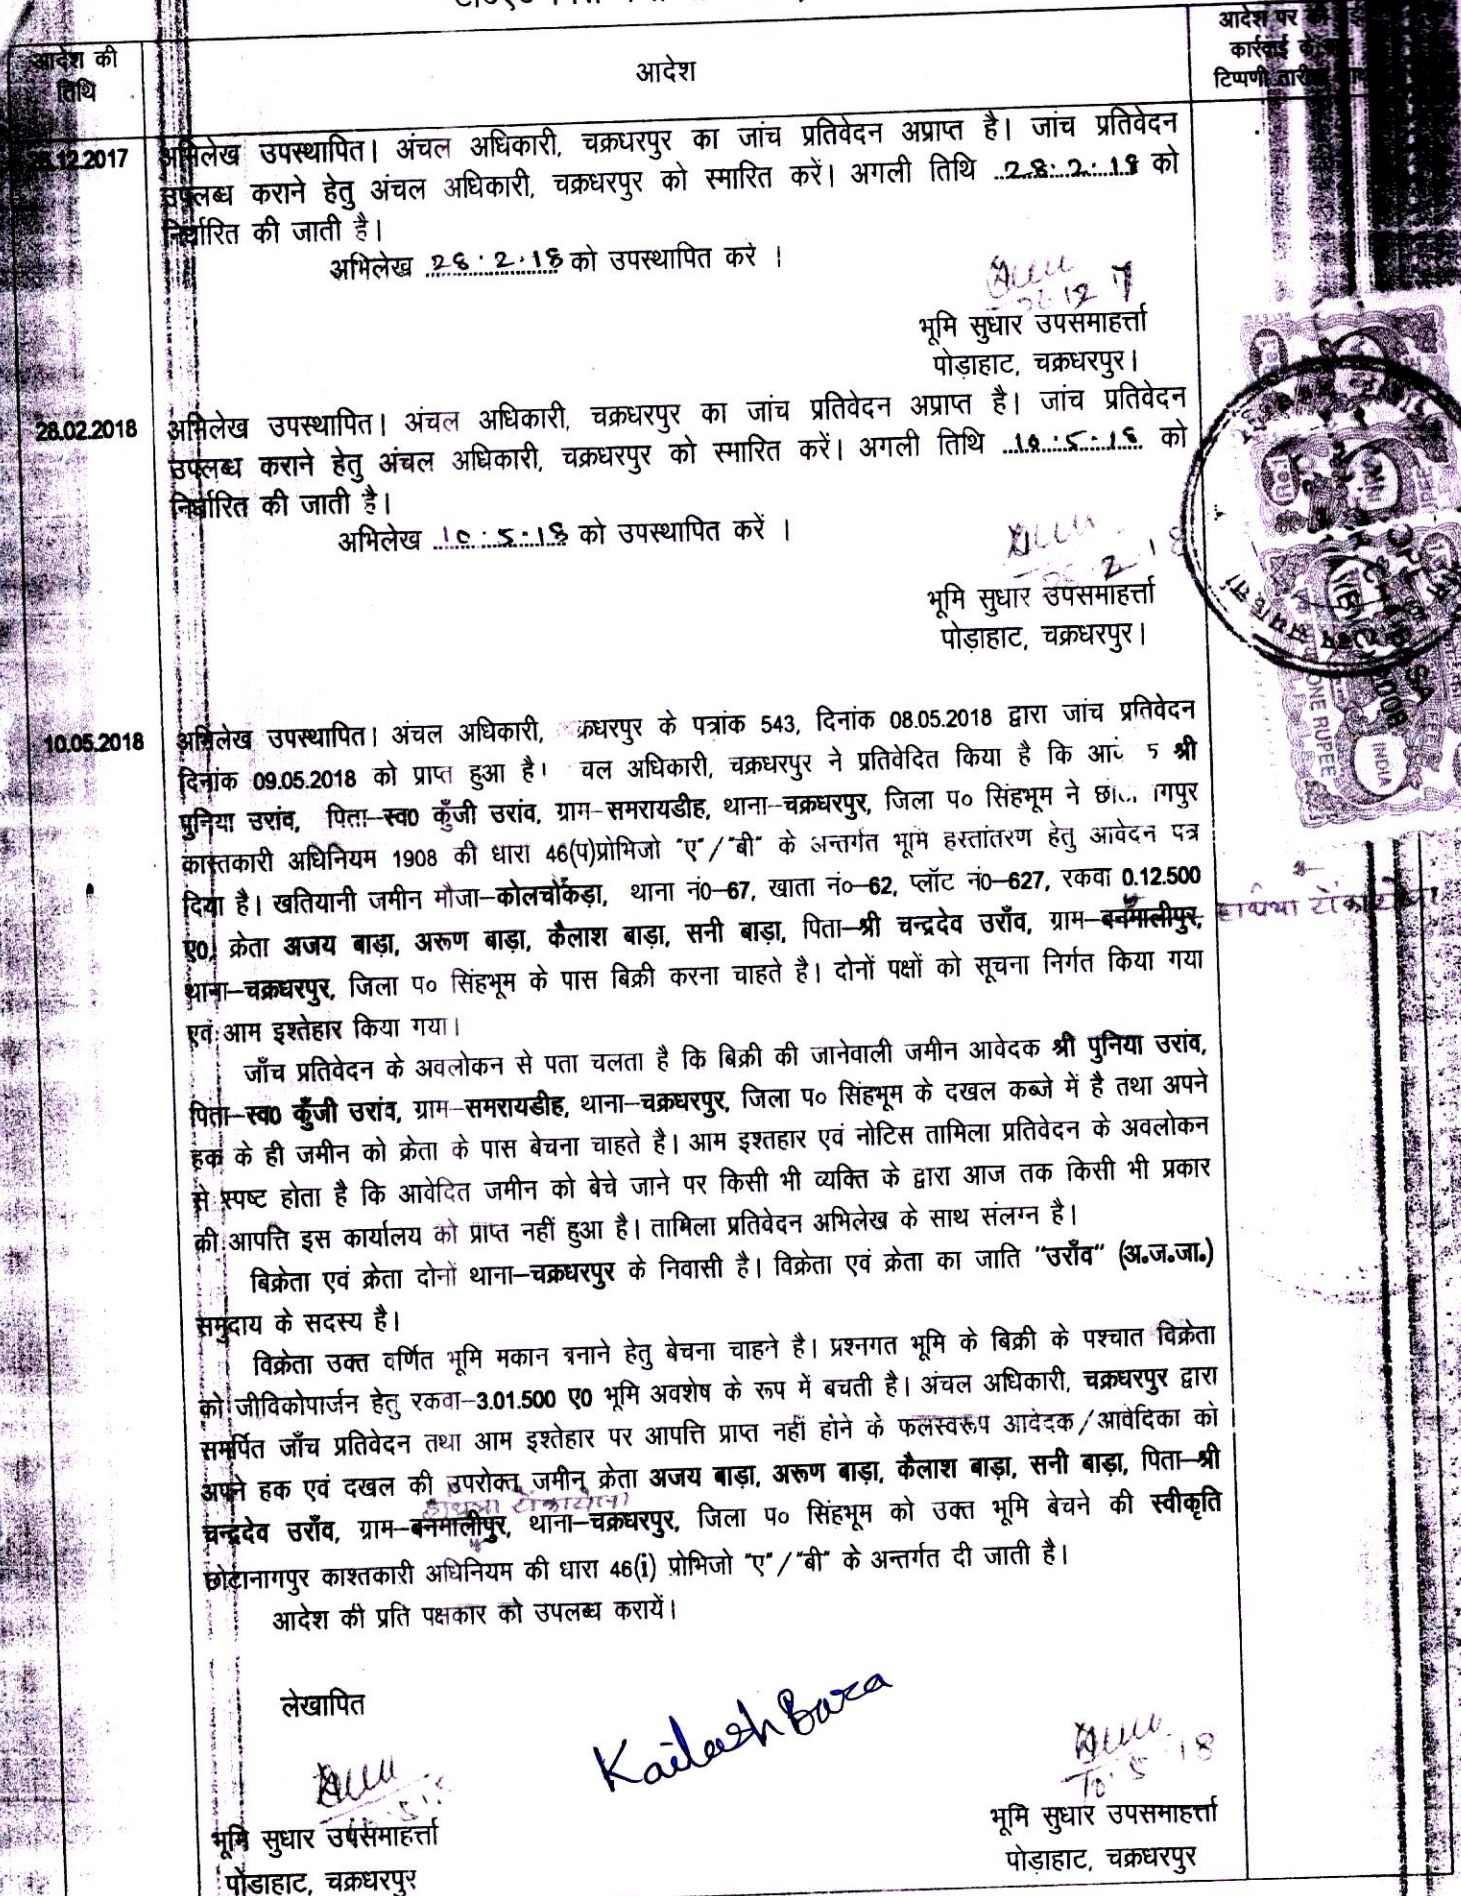 आदेश की
तिथि
आदेश
आदेश पर
कार्रवाई
टिप्पणी
.12.2017
अभिलेख उपस्थापित। अंचल अधिकारी, चक्रधरपुर का जांच प्रतिवेदन अप्राप्त है। जांच प्रतिवेदन
उपलब्ध कराने हेतु अंचल अधिकारी, चक्रधरपुर को स्मारित करें। अगली तिथि 28.2.18 को
निर्धारित की जाती है।
अभिलेख 28.2.18 को उपस्थापित करे ।
भूमि सुधार उपसमाहर्त्ता
पोड़ाहाट, चक्रधरपुर।
28.02.2018
अभिलेख उपस्थापित। अंचल अधिकारी, चक्रधरपुर का जांच प्रतिवेदन अप्राप्त है। जांच प्रतिवेदन
उपलब्ध कराने हेतु अंचल अधिकारी, चक्रधरपुर को स्मारित करें। अगली तिथि 10.5.18 को
निर्धारित की जाती है।
अभिलेख 10.5.18 को उपस्थापित करें ।
भूमि सुधार उपसमाहर्त्ता
पोड़ाहाट, चक्रधरपुर।
ONE RUPEE
INDIA
10.05.2018
अभिलेख उपस्थापित। अंचल अधिकारी, क्रधरपुर के पत्रांक 543, दिनांक 08.05.2018 द्वारा जांच प्रतिवेदन
दिनांक 09.05.2018 को प्राप्त हुआ है। चल अधिकारी, चक्रधरपुर ने प्रतिवेदित किया है कि श्री
पुनिया उरांव, पिता–स्व0 कुँजी उरांव, ग्राम–समरायडीह, थाना–चक्रधरपुर, जिला प० सिंहभूम ने
कास्तकारी अधिनियम 1908 की धारा 46(प)प्रोभिजो "ए"/"बी" के अन्तर्गत भूमि हस्तांतरण हेतु आवेदन पत्र
दिया है। खतियानी जमीन मौजा–कोलचोकड़ा, थाना नं0–67, खाता नं०–62, प्लॉट नं0–627, रकवा 0.12.500
ए0, क्रेता अजय बाड़ा, अरूण बाड़ा, कैलाश बाड़ा, सनी बाड़ा, पिता–श्री चन्द्रदेव उराँव, ग्राम–बनमालीपुर,
थाना–चक्रधरपुर, जिला प० सिंहभूम के पास बिक्री करना चाहते है। दोनों पक्षों को सूचना निर्गत किया गया
एवं आम इश्तेहार किया गया।
जाँच प्रतिवेदन के अवलोकन से पता चलता है कि बिक्री की जानेवाली जमीन आवेदक श्री पुनिया उरांव,
पिता–स्व0 कुँजी उरांव, ग्राम–समरायडीह, थाना–चक्रधरपुर, जिला प० सिंहभूम के दखल कब्जे में है तथा अपने
हक के ही जमीन को क्रेता के पास बेचना चाहते है। आम इश्तहार एवं नोटिस तामिला प्रतिवेदन के अवलोकन
से स्पष्ट होता है कि आवेदित जमीन को बेचे जाने पर किसी भी व्यक्ति के द्वारा आज तक किसी भी प्रकार
की आपत्ति इस कार्यालय को प्राप्त नहीं हुआ है। तामिला प्रतिवेदन अभिलेख के साथ संलग्न है।
बिक्रेता एवं क्रेता दोनों थाना–चक्रधरपुर के निवासी है। विक्रेता एवं क्रेता का जाति "उराँव" (अ.ज.जा.)
समुदाय के सदस्य है।
विक्रेता उक्त वर्णित भूमि मकान बनाने हेतु बेचना चाहने है। प्रश्नगत भूमि के बिक्री के पश्चात विक्रेता
को जीविकोपार्जन हेतु रकवा–3.01.500 ए0 भूमि अवशेष के रूप में बचती है। अंचल अधिकारी, चक्रधरपुर द्वारा
समर्पित जाँच प्रतिवेदन तथा आम इश्तेहार पर आपत्ति प्राप्त नहीं होने के फलस्वरूप आवेदक/आवेदिका को
अपने हक एवं दखल की उपरोक्त जमीन क्रेता अजय बाड़ा, अरूण बाड़ा, कैलाश बाड़ा, सनी बाड़ा, पिता–श्री
चन्द्रदेव उराँव, ग्राम–बनमालीपुर, थाना–चक्रधरपुर, जिला प० सिंहभूम को उक्त भूमि बेचने की स्वीकृति
छोटानागपुर काश्तकारी अधिनियम की धारा 46(i) प्रोभिजो "ए"/"बी" के अन्तर्गत दी जाती है।
आदेश की प्रति पक्षकार को उपलब्ध करायें।
लेखापित
Kailash Bara
10.5.18
भूमि सुधार उपसमाहर्त्ता
पोड़ाहाट, चक्रधरपुर
भूमि सुधार उपसमाहर्त्ता
पोड़ाहाट, चक्रधरपुर